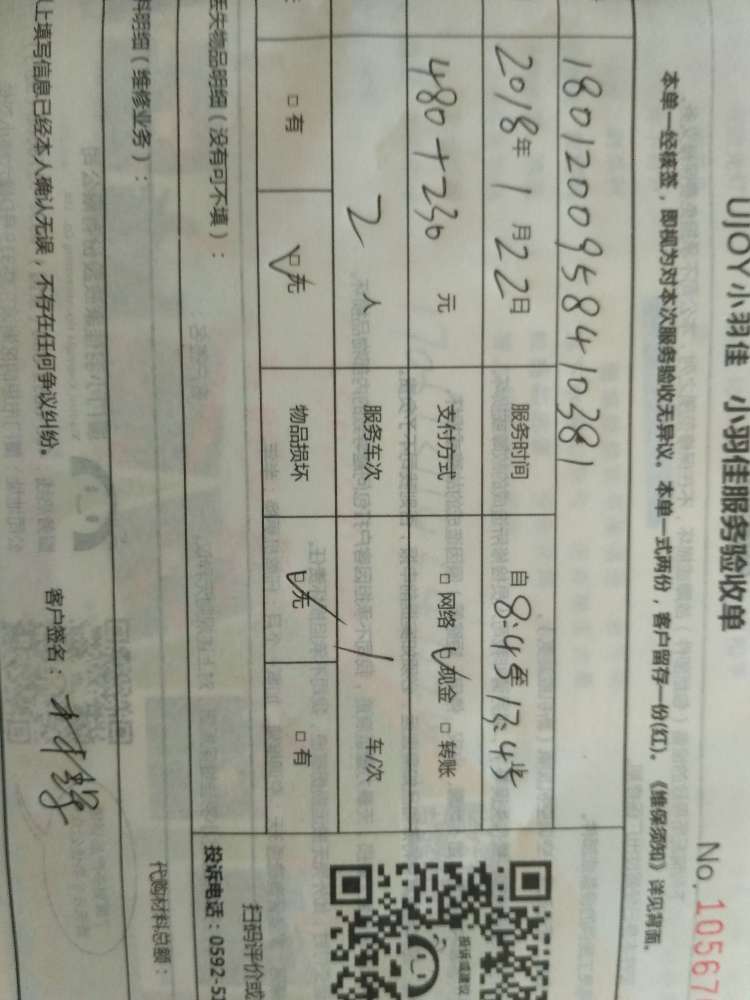 UJOY小羽佳 小羽佳服务验收单
No. 10567
本单一经核签，即视为对本次服务验收无异议。本单一式两份，客户留存一份(红)。《维保须知》详见背面。
1801200958410381
2018年1月22日 服务时间 自8:45至13:45
480+230 元 支付方式 □ 网络 ☑现金 □ 转账
2 人 服务车次 / 车/次
□ 有 ☑无 物品损坏 ☑无 □ 有
失物品明细（没有可不填）：
扫码评价或
投诉或建议
投诉电话：0592-5
料明细（维修业务）：
代购材料总额：
上填写信息已经本人确认无误，不存在任何争议纠纷。 客户签名：